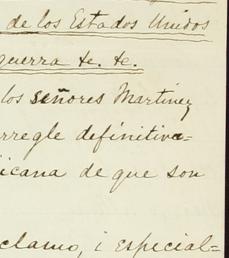 de los Estados Unidos
guerra &c. &c.
los señores Martinez
arregle definitiva=
icana de que son
clamo, i especial=